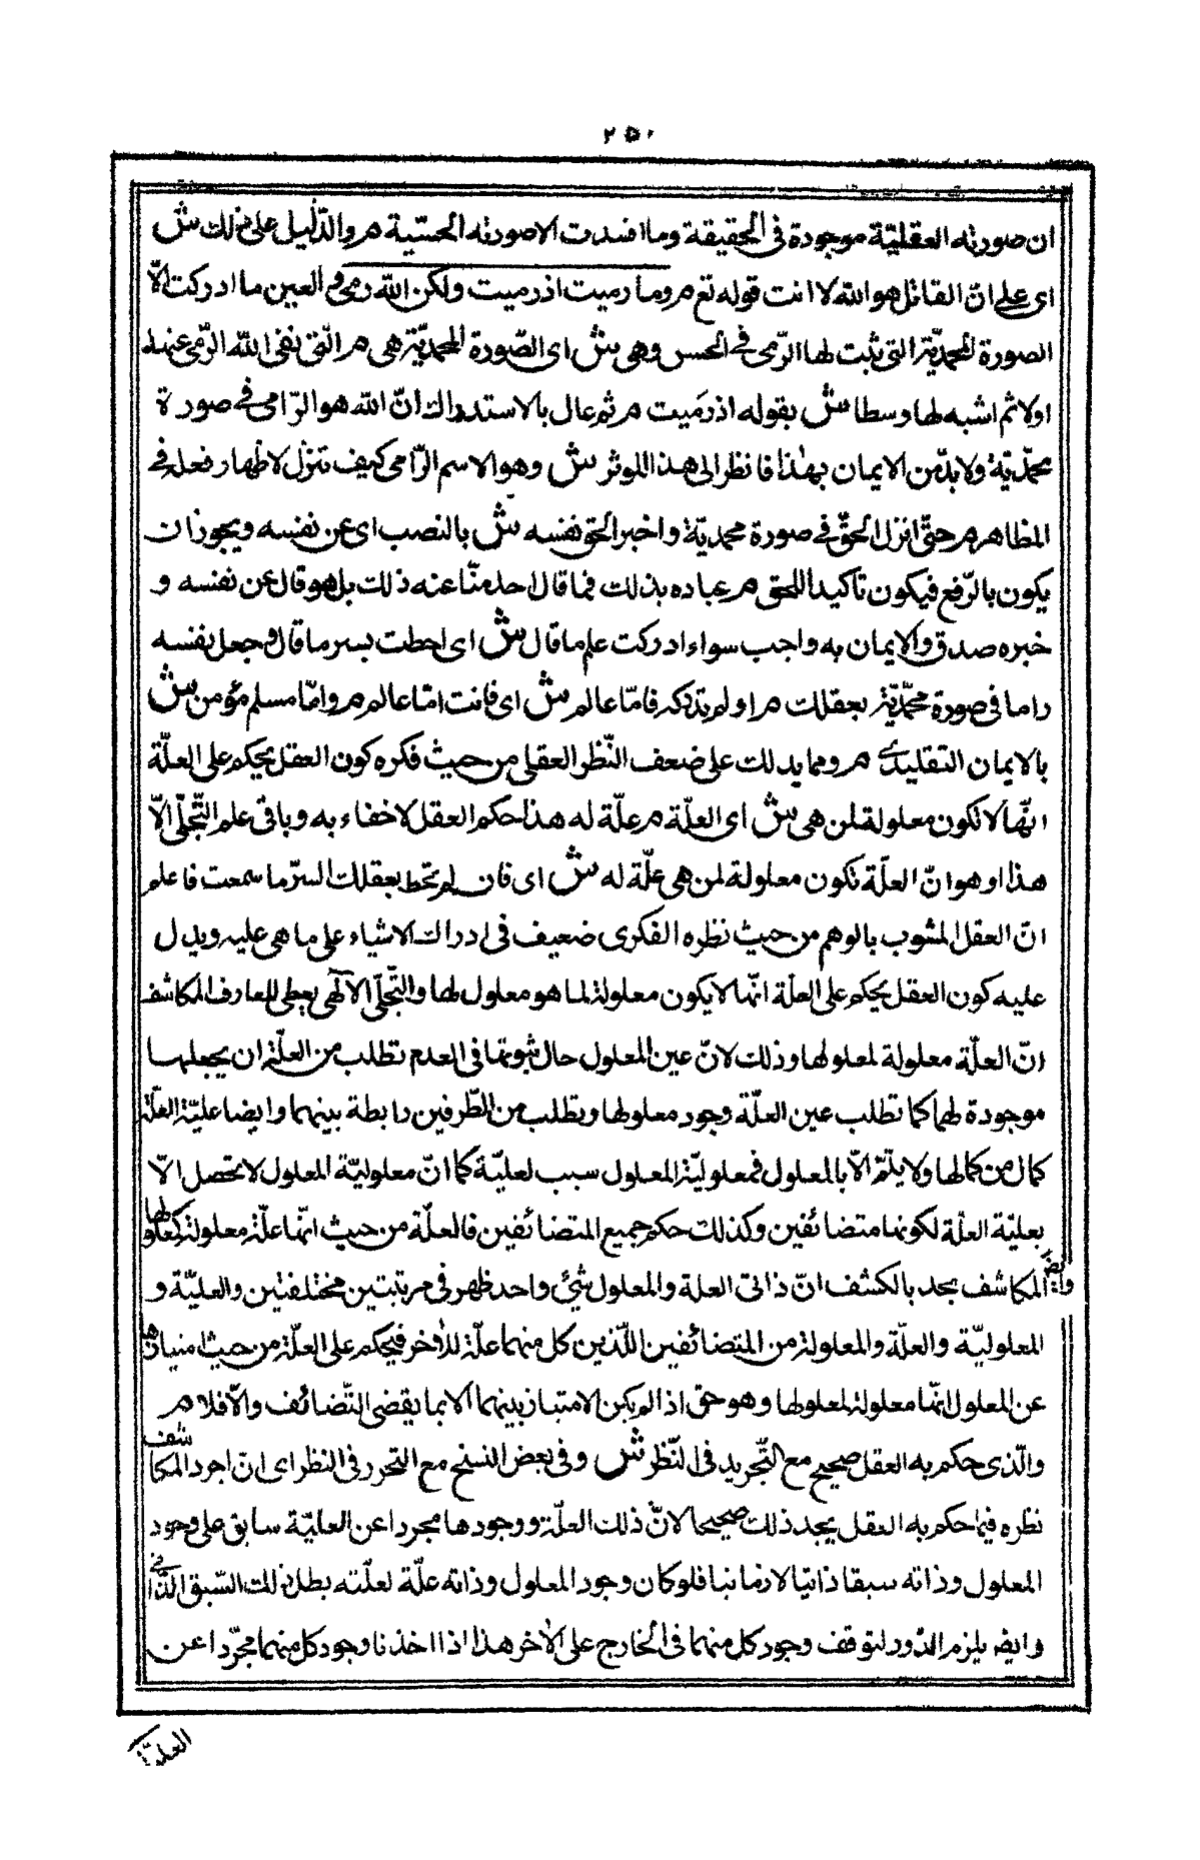 ٢٥٠
ان صورته العقليّة موجودة فى الحقيقة وما افسدت الا صورته الحسّية م والدّليل على ذلك ش
اى على انّ القاتل هو الله لا انت قوله تع م وما رميت اذ رميت ولكن الله رمى والعين ما ادركت الّا
الصورة المحمديّة التى ثبت لها الرّمى فى الحس وهى ش اى الصّورة المحمديّة هى م الّتى نفى الله الرّمى عنها
اولا ثم اثبته لها وسطا ش بقوله اذ رَميت م ثم عاد بالاستدراك انّ الله هو الرّامى فى صورة
محمّديّة ولا بدّ من الايمان بهذا فانظر الى هذا الموثر ش وهو الاسم الرّامى كيف تنزل لاظهار فعله فى
المظاهر م حتّى انزل الحقّ فى صورة محمديّة واخبر الحق نفسه ش بالنصب اى عن نفسه ويجوز ان
يكون بالرّفع فيكون تأكيدا للحق م عباده بذلك فما قال احد منّا عنه ذلك بل هو قال عن نفسه و
خبره صدق والايمان به واجب سواء ادركت علم ما قال ش اى احطت بسر ما قال وجعل نفسه
راما فى صورة محمّديّة بعقلك م او لم تدركه فامّا عالم ش اى فانت امّا عالم م وامّا مسلم مؤمن ش
بالايمان التقليدى م ومما يدلك على ضعف النّظر العقلى من حيث فكره كون العقل يحكم على العلّة
انّها لا تكون معلولة لمن هى ش اى العلّة م علّة له هذا حكم العقل لا خفاء به وما فى علم التّجلّى الّا
هذا وهو انّ العلّة تكون معلولة لمن هى علّة له ش اى فان لم تحط بعقلك السرّ ما سمعت فاعلم
انّ العقل المشوب بالوهم من حيث نظره الفكرى ضعيف فى ادراك الاشياء على ما هى عليه ويدل
عليه كون العقل يحكم على العلّة انّها لا يكون معلولة لما هو معلول لها والتّجلّى الآلهى يعطى للعارف المكاشف
انّ العلّة معلولة لمعلولها وذلك لانّ عين المعلول حال ثبوتها فى العدم تطلب من العلّة ان يجعلها
موجودة لها كما تطلب عين العلّة وجود معلولها ويطلب من الطّرفين رابطة بينهما وايضا عليّة العلّة
كمال من كمالها ولا يتمّ الّا بالمعلول فمعلوليّة المعلول سبب لعليّة كما انّ معلوليّة المعلول لا تحصل الّا
بعليّة العلّة لكونها متضائفين وكذلك حكم جميع المتضائفين فالعلّة من حيث انّها علّة معلولة لمعلولها
وايض المكاشف يجد بالكشف انّ ذاتى العلة والمعلول شئ واحد ظهر فى مرتبتين مختلفتين والعليّة و
المعلوليّة والعلّة والمعلولة من المتضائفين اللّذين كل منهما علّة للاخر فيحكم على العلّة من حيث امتيازها
عن المعلول انّها معلولة لمعلولها وهو حق اذ لم يكن الامتياز بينهما الا بما يقضى التّضائف والّا فلا م
والّذى حكم به العقل صحيح مع التّجريد فى النّظر ش وفى بعض النسخ مع التحرر فى النظر اى انّ اجرد المكاشف
نظره فيما حكم به العقل يجد ذلك صحيحا لانّ ذلك العلّة ووجودها مجردا عن العليّة سابق على وجود
المعلول وذاته سبقا ذاتيا لا زمانيا فلو كان وجود المعلول وذاته علّة لعلّته بطل ذلك السّبق الذّاتى
وايض يلزم الدّور لتوقف وجود كل منهما فى الخارج على الاخر هذا اذا اخذنا وجود كل منهما مجرّدا عن
العليّة